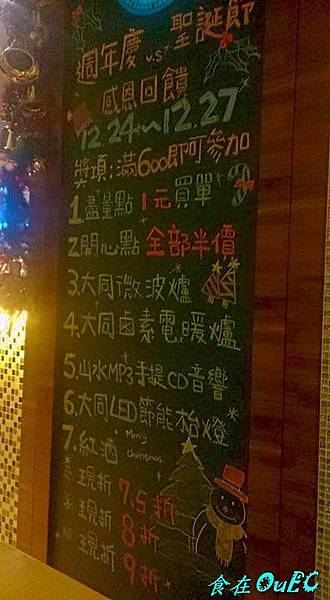 週年慶 v.s 聖誕節
感恩回饋
12.24～12.27
獎項:滿600即可參加
1.盡量點 1元買單
2.開心點 全部半價
3.大同微波爐
4.大同鹵素電暖爐
5.山水MP3手提CD音響
6.大同LED節能枱燈
7.紅酒
Merry
Christmas
現折 7.5折
現折 8折
現折 9折
食在OuBC